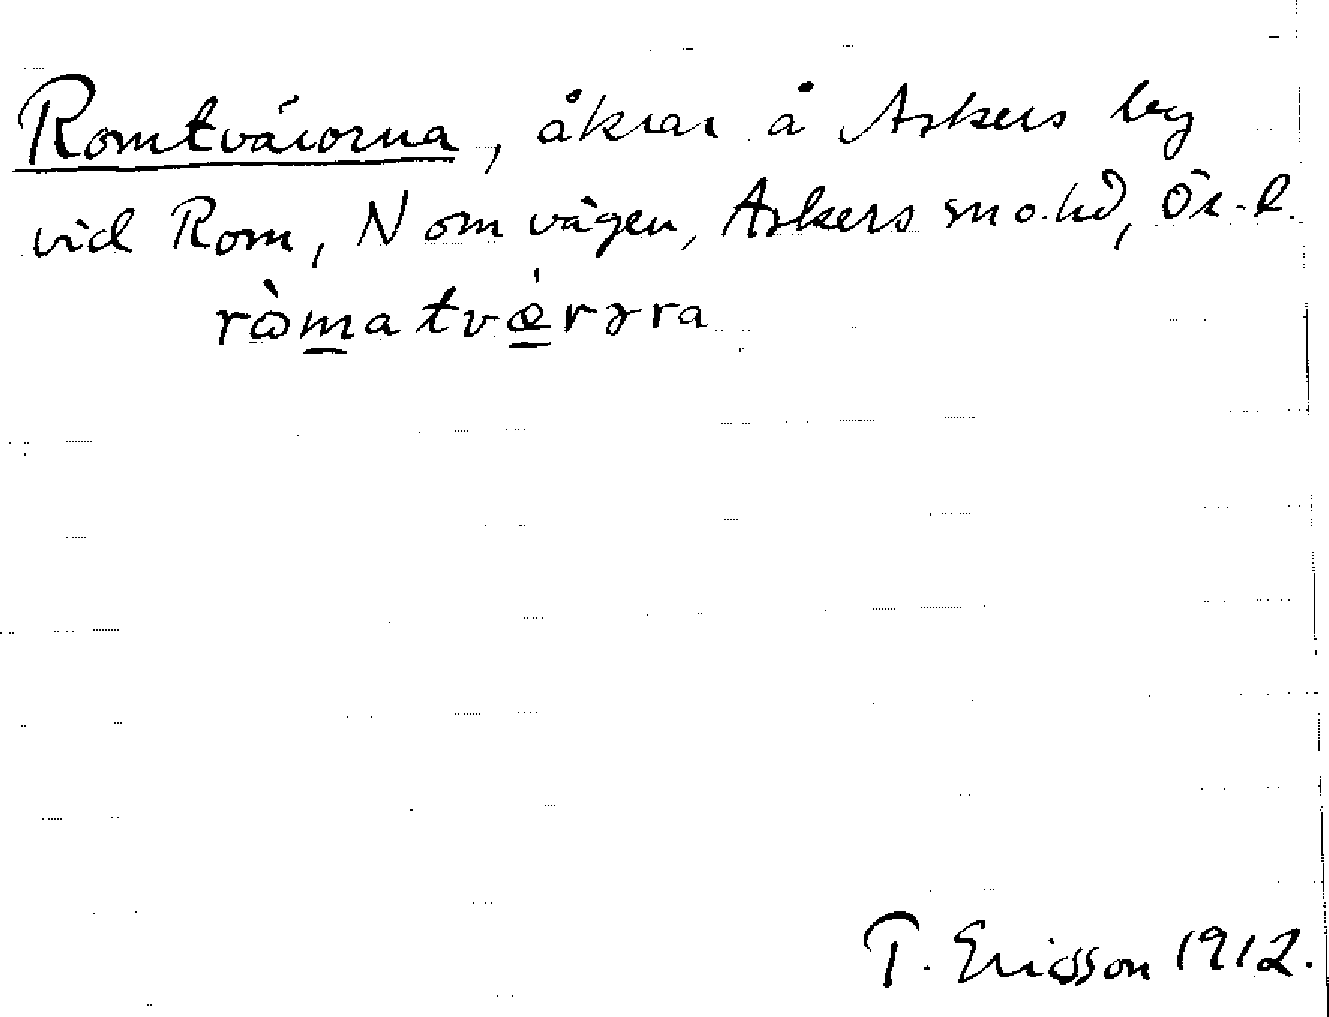 Romtvärorna, åkrar å Askers by
vid Rom, N om vägen, Askers sn o. hd, Ör. l.
ròmatvǽrɔra
T. Ericsson 1912.